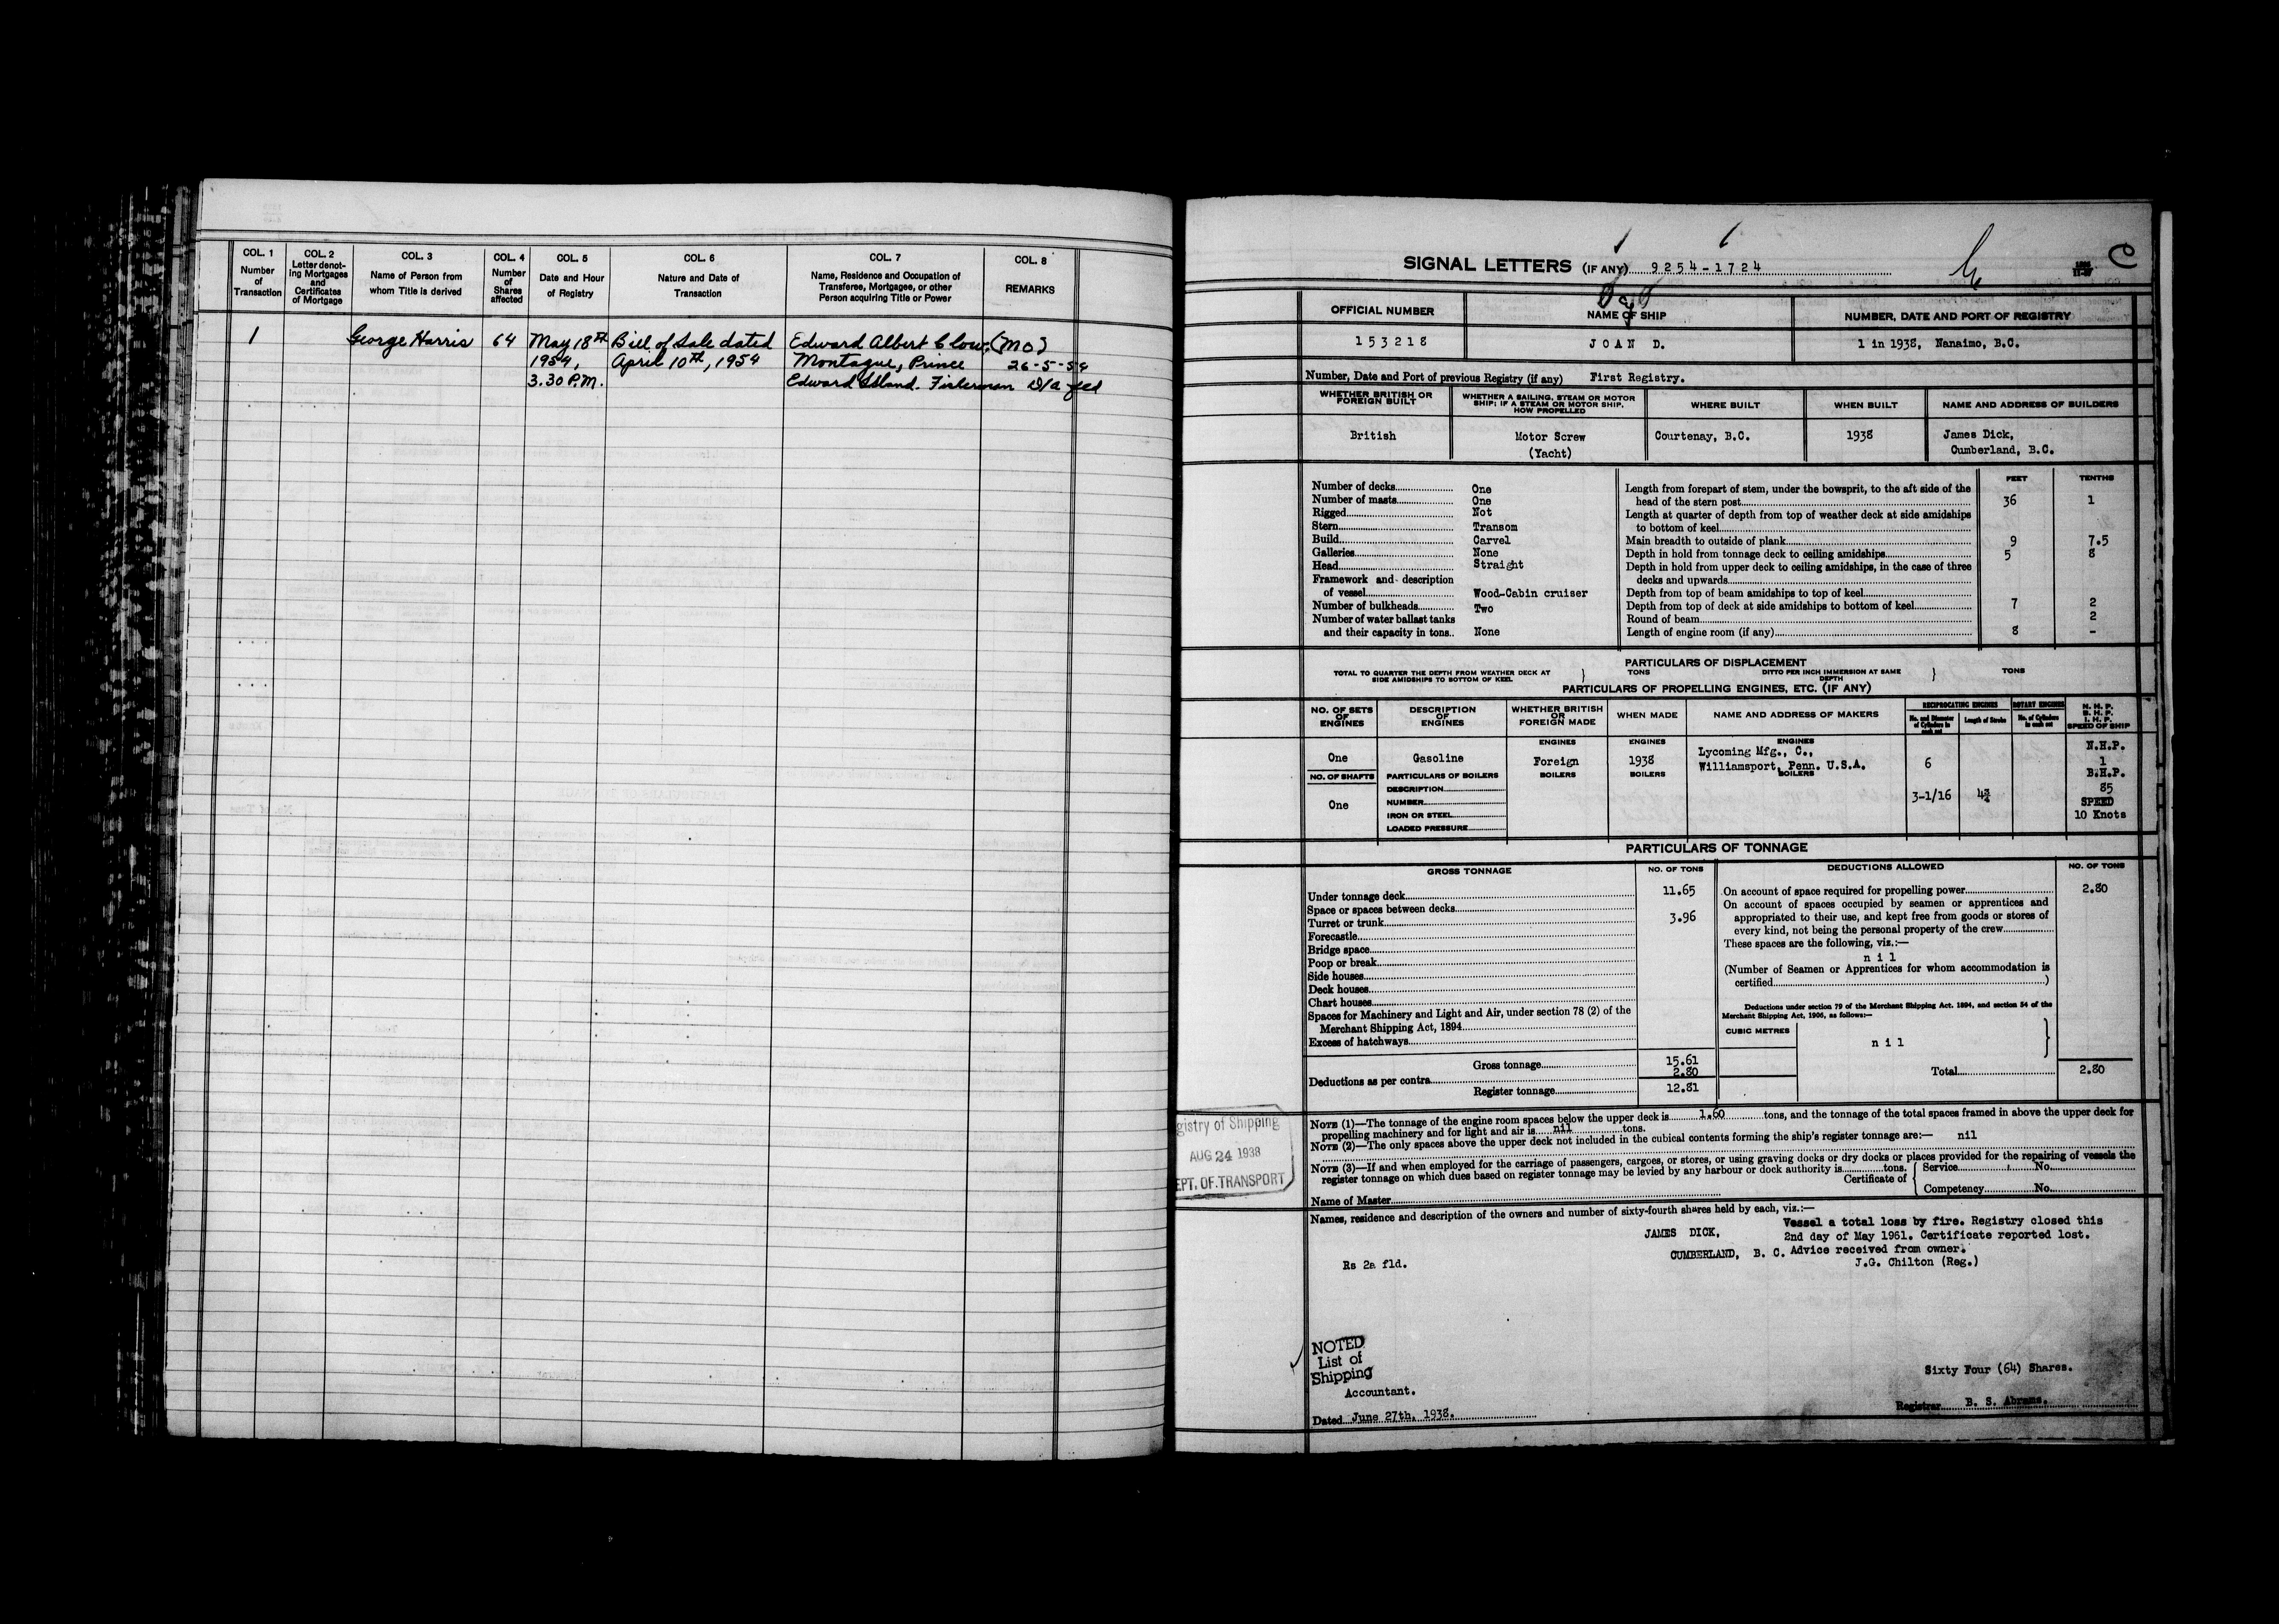 COL. 1
Number
of
Transaction
COL. 2
Letter denot-
ing Mortgages
and
Certificates
of Mortgage
COL. 3
Name of Person from
whom Title is derived
COL. 4
Number
of
Shares
affected
COL. 5
Date and Hour
of Registry
COL. 6
Nature and Date of
Transaction
COL. 7
Name, Residence and Occupation of
Transferee, Mortgagee, or other
Person acquiring Title or Power
COL. 8
REMARKS
1 George Harris 64 May 18th Bill of Sale dated Edward Albert Clow, (MO)
1954, April 10th, 1954 Montague, Prince 26-5-54
3.30 P.M. Edward Island. Fisherman D/a fld
SIGNAL LETTERS (IF ANY) 9254-1724
C
OFFICIAL NUMBER
153218
NAME OF SHIP
JOAN D.
NUMBER, DATE AND PORT OF REGISTRY
1 in 1938, Nanaimo, B.C.
Number, Date and Port of previous Registry (if any) First Registry.
WHETHER BRITISH OR
FOREIGN BUILT
British
WHETHER A SAILING, STEAM OR MOTOR
SHIP; IF A STEAM OR MOTOR SHIP,
HOW PROPELLED
Motor Screw
(Yacht)
WHERE BUILT
Courtenay, B.C.
WHEN BUILT
1938
NAME AND ADDRESS OF BUILDERS
James Dick,
Cumberland, B.C.
Number of decks One
Number of masts One
Rigged Not
Stern Transom
Build Carvel
Galleries None
Head Straight
Framework and description
of vessel Wood-Cabin cruiser
Number of bulkheads Two
Number of water ballast tanks
and their capacity in tons None
FEET TENTHS
Length from forepart of stem, under the bowsprit, to the aft side of the
head of the stern post 36 1
Length at quarter of depth from top of weather deck at side amidships
to bottom of keel
Main breadth to outside of plank 9 7.5
Depth in hold from tonnage deck to ceiling amidships 5 8
Depth in hold from upper deck to ceiling amidships, in the case of three
decks and upwards
Depth from top of beam amidships to top of keel
Depth from top of deck at side amidships to bottom of keel 7 2
Round of beam 2
Length of engine room (if any) 8 -
PARTICULARS OF DISPLACEMENT
TOTAL TO QUARTER THE DEPTH FROM WEATHER DECK AT
SIDE AMIDSHIPS TO BOTTOM OF KEEL } TONS
DITTO PER INCH IMMERSION AT SAME
DEPTH } TONS
PARTICULARS OF PROPELLING ENGINES, ETC. (IF ANY)
NO. OF SETS
OF
ENGINES
One
NO. OF SHAFTS
One
DESCRIPTION
OF
ENGINES
Gasoline
PARTICULARS OF BOILERS
DESCRIPTION
NUMBER
IRON OR STEEL
LOADED PRESSURE
WHETHER BRITISH
OR
FOREIGN MADE
ENGINES
Foreign
BOILERS
WHEN MADE
ENGINES
1938
BOILERS
NAME AND ADDRESS OF MAKERS
ENGINES
Lycoming Mfg., C.,
Williamsport, Penn. U.S.A.
BOILERS
RECIPROCATING ENGINES
No. and Diameter
of Cylinders in
each set
6
3-1/16
Length of Stroke
4¾
ROTARY ENGINES
No. of Cylinders
in each set
N. H. P.
B. H. P.
I. H. P.
SPEED OF SHIP
N.H.P.
1
B.H.P.
85
SPEED
10 Knots
PARTICULARS OF TONNAGE
GROSS TONNAGE NO. OF TONS
Under tonnage deck 11.65
Space or spaces between decks
Turret or trunk 3.96
Forecastle
Bridge space
Poop or break
Side houses
Deck houses
Chart houses
Spaces for Machinery and Light and Air, under section 78 (2) of the
Merchant Shipping Act, 1894
Excess of hatchways
Gross tonnage 15.61
Deductions as per contra 2.80
Register tonnage 12.81
DEDUCTIONS ALLOWED NO. OF TONS
On account of space required for propelling power 2.80
On account of spaces occupied by seamen or apprentices and
appropriated to their use, and kept free from goods or stores of
every kind, not being the personal property of the crew
These spaces are the following, viz.:—
nil
(Number of Seamen or Apprentices for whom accommodation is
certified )
Deductions under section 79 of the Merchant Shipping Act, 1894, and section 54 of the
Merchant Shipping Act, 1906, as follows:—
CUBIC METRES
nil
Total 2.80
NOTE (1)—The tonnage of the engine room spaces below the upper deck is 1.60 tons, and the tonnage of the total spaces framed in above the upper deck for
propelling machinery and for light and air is nil tons.
NOTE (2)—The only spaces above the upper deck not included in the cubical contents forming the ship's register tonnage are:— nil
NOTE (3)—If and when employed for the carriage of passengers, cargoes, or stores, or using graving docks or dry docks or places provided for the repairing of vessels the
register tonnage on which dues based on register tonnage may be levied by any harbour or dock authority is tons.
Certificate of { Service No.
Competency No.
Name of Master
gistry of Shipping
AUG 24 1938
EPT. OF TRANSPORT
Names, residence and description of the owners and number of sixty-fourth shares held by each, viz.:—
JAMES DICK,
CUMBERLAND, B. C.
Vessel a total loss by fire. Registry closed this
2nd day of May 1961. Certificate reported lost.
Advice received from owner.
J.G. Chilton (Reg.)
Rs 2a fld.
NOTED
List of
Shipping
Accountant.
Sixty Four (64) Shares.
Dated June 27th, 1938.
Registrar B. S. Abrams.